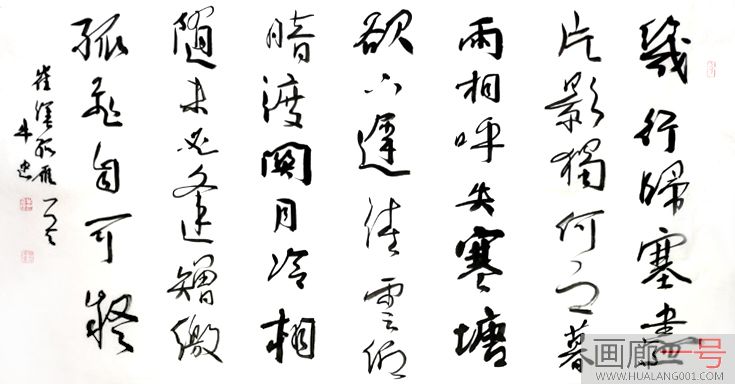 幾行歸塞盡
片影獨何之暮
雨相呼失寒塘
欲下遲渚雲低
暗渡關月冷相
隨未必逢矰繳
孤飛自可疑
崔塗孤雁一首
画廊一号
WWW.HUALANG001.COM